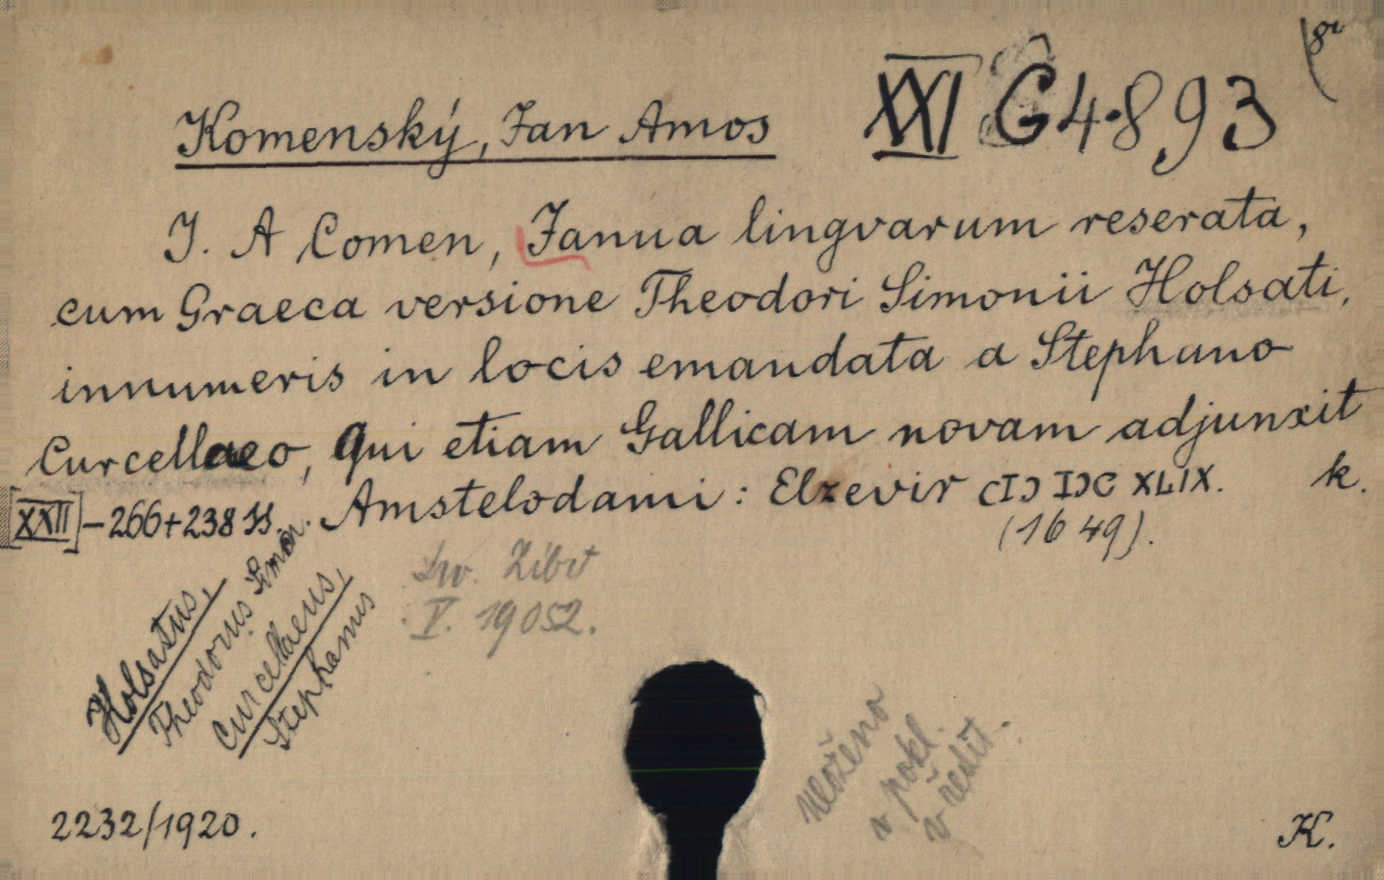 8°
XXI G 4.893
Komenský, Jan Amos
J. A Comen, Janua lingvarum reserata,
cum Graeca versione Theodori Simonii Holsati,
innumeris in locis emandata a Stephano
Curcellaeo, qui etiam Gallicam novam adjunxit
[XXII]-266+238 SS. Amstelodami: Elzevir CIƆ IƆC XLIX. k.
(1649).
Holsatus,
Theodorus Simon.
Curcellaeus,
Stephanus
Zíbrt
V. 19052.
vloženo
v pokl.
v ředit.
2232/1920.
K.